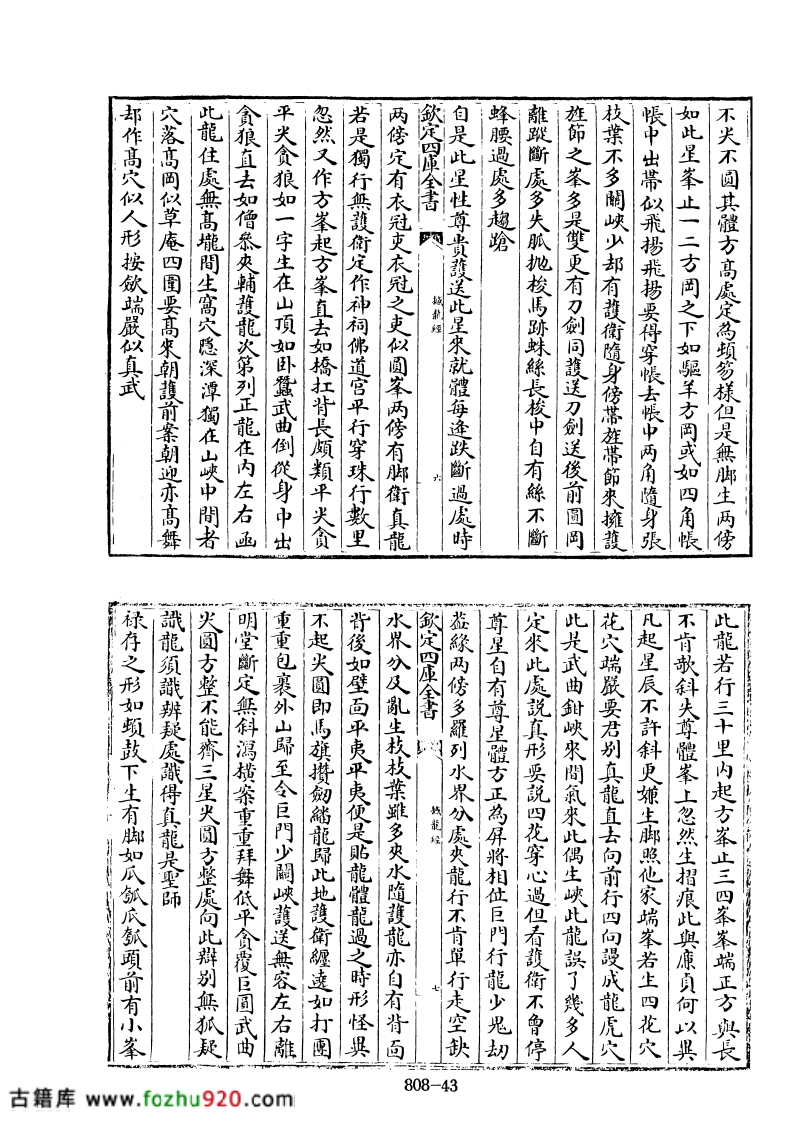 不尖不圓其體方高處定為頓笏樣但是無脚生兩傍
如此星峯止一二方岡之下如驅羊方岡或如四角帳
帳中出帶似飛揚飛揚要得穿帳去帳中兩角隨身張
枝葉不多關峽少却有護衛隨身傍帶旌帶節來擁護
旌節之峯多是雙更有刀劍同護送刀劍送後前圓岡
離蹤斷處多失脈抛梭馬跡蛛絲長梭中自有絲不斷
蜂腰過處多趨蹌
自是此星性尊貴護送此星來就體每逢跌斷過處時
欽定四庫全書
撼龍經
六
兩傍定有衣冠吏衣冠之吏似圓峯兩傍有脚衛真龍
若是獨行無護衛定作神祠佛道宫平行穿珠行數里
忽然又作方峯起方峯直去如橋扛背長頗類平尖貪
平尖貪狼如一字生在山頂如卧蠶武曲倒從身中出
貪狼直去如僧叅夾輔護龍次第列正龍在内左右函
此龍住處無高壠間生窩穴隠深潭獨在山峽中間者
穴落高岡似草庵四圍要高來朝護前案朝迎亦高舞
却作高穴似人形按劍端嚴似真武
此龍若行三十里内起方峯止三四峯峯端正方與長
不肯欹斜失尊體峯上忽然生摺痕此與廉貞何以異
凡起星辰不許斜更嫌生脚照他家端峯若生四花穴
花穴端嚴要君别真龍直去向前行四向謾成龍虎穴
此是武曲鉗峽來間氣來此偶生峽此龍誤了幾多人
定來此處說真形要說四花穿心過但看護衛不曾停
尊星自有尊星體方正為屏將相位巨門行龍少鬼劫
葢緣兩傍多羅列水界分處夾龍行不肯單行走空缺
欽定四庫全書
撼龍經
七
水界分及亂生枝枝葉雖多夾水隨護龍亦自有背面
背後如壁面平夷平夷便是貼龍體龍過之時形怪異
不起尖圓即馬旗攢劍繙龍歸此地護衛纒遶如打團
重重包裹外山歸至令巨門少關峽護送無容左右離
明堂斷定無斜瀉横案重重拜舞低平貪覆巨圓武曲
尖圓方整不能齊三星尖圓方整處向此辯别無狐疑
識龍須識辨疑處識得真龍是聖師
禄存之形如頓鼓下生有脚如瓜瓠瓜瓠頭前有小峯
808-43
古籍库 www.fozhu920.com